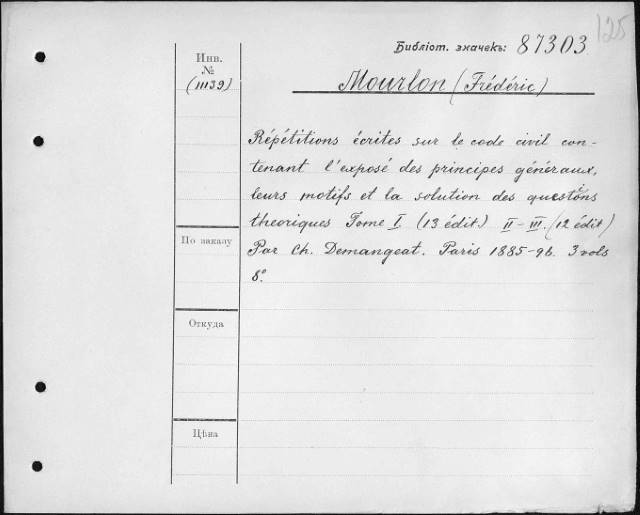 125
Библіот. значекъ: 87303
Инв.
№
(11139)
Mourlon (Frédéric)
Répétitions écrites sur le code civil con-
tenant l'exposé des principes généraux,
leurs motifs et la solution des questions
theoriques Tome I (13 édit) II-III. (12 édit)
По заказу
Par Ch. Demangeat. Paris 1885-96. 3 vols
8º.
Откуда
Цѣна